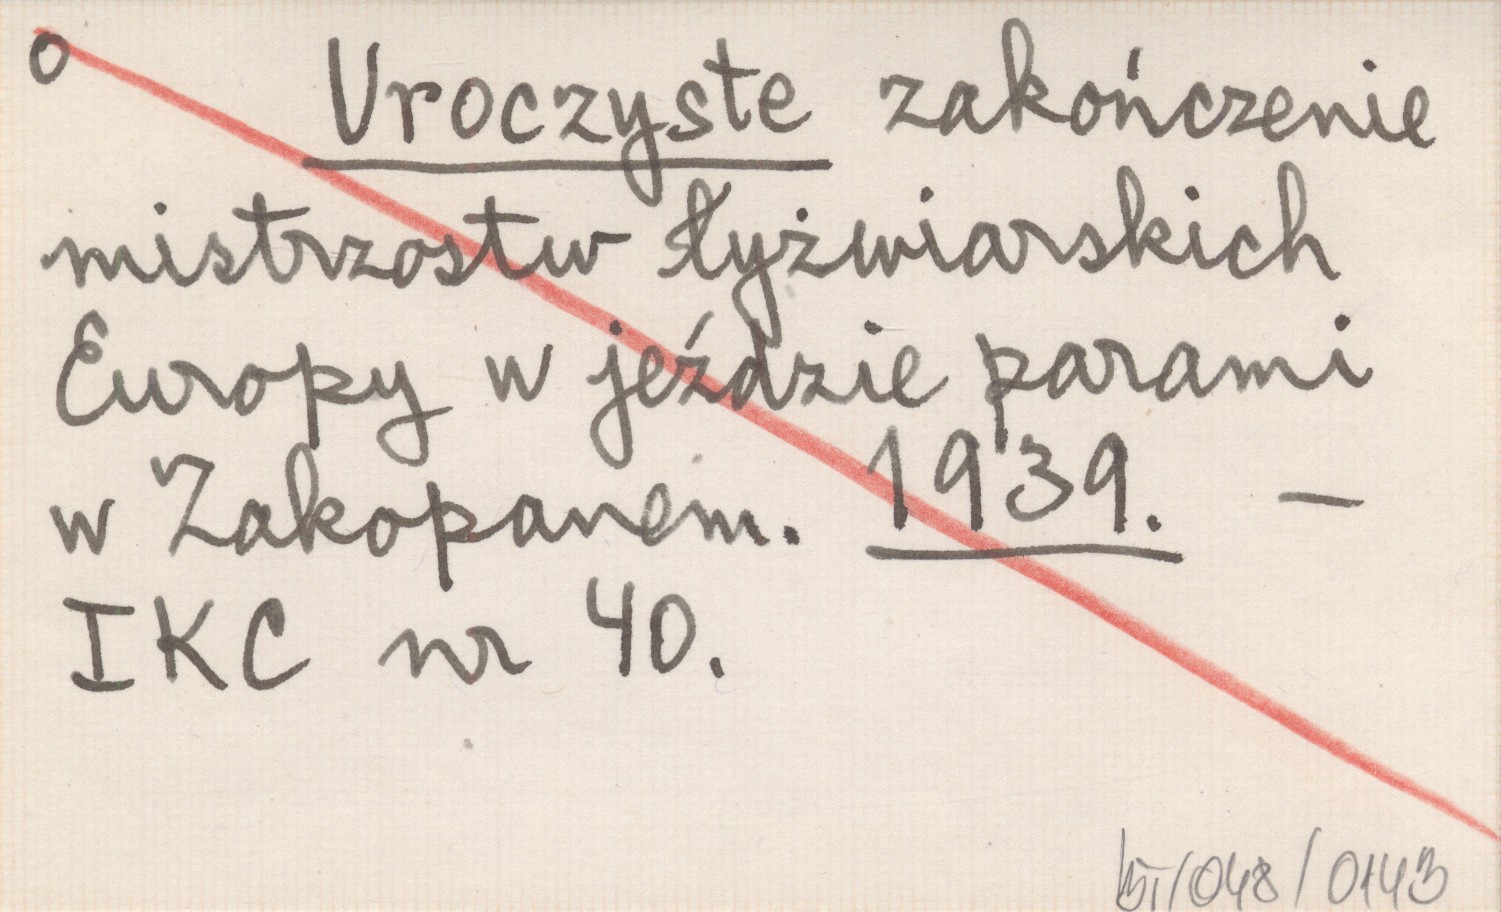 o Uroczyste zakończenie
mistrzostw łyżwiarskich
Europy w jeździe parami
w Zakopanem. 1939. —
IKC nr 40.
/048/0143